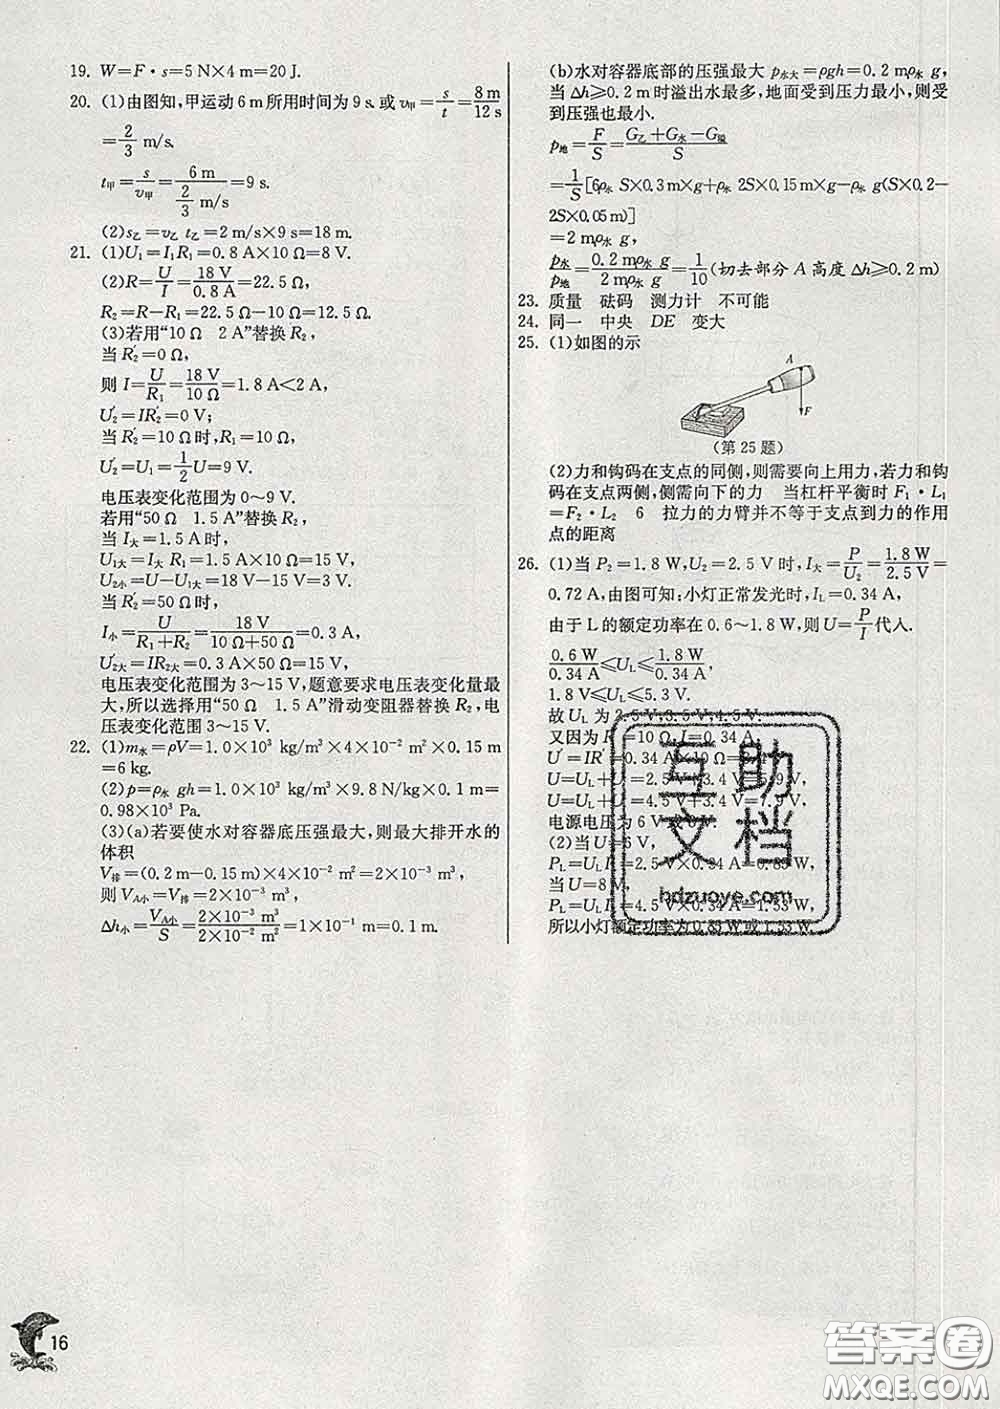 19. W=F·s=5 N×4 m=20 J.
20. (1)由图知,甲运动6 m所用时间为9 s.或v甲=s/t=8 m/12 s
=2/3 m/s.
t甲=s/v甲=6 m/(2/3 m/s)=9 s.
(2)s乙=v乙 t乙=2 m/s×9 s=18 m.
21. (1)U₁=I₁R₁=0.8 A×10 Ω=8 V.
(2)R=U/I=18 V/0.8 A=22.5 Ω,
R₂=R−R₁=22.5 Ω−10 Ω=12.5 Ω.
(3)若用“10 Ω 2 A”替换R₂,
当R₂′=0 Ω,
则I=U/R₁=18 V/10 Ω=1.8 A<2 A,
U₂′=IR₂′=0 V;
当R₂′=10 Ω时,R₁=10 Ω,
U₂′=U₁=1/2U=9 V.
电压表变化范围为0～9 V.
若用“50 Ω 1.5 A”替换R₂,
当I大=1.5 A时,
U₁大=I大 R₁=1.5 A×10 Ω=15 V,
U₂小=U−U₁大=18 V−15 V=3 V.
当R₂′=50 Ω时,
I小=U/(R₁+R₂)=18 V/(10 Ω+50 Ω)=0.3 A,
U₂′大=IR₂大=0.3 A×50 Ω=15 V,
电压表变化范围为3～15 V,题意要求电压表变化量最
大,所以选择用“50 Ω 1.5 A”滑动变阻器替换R₂,电
压表变化范围3～15 V.
22. (1)m水=ρV=1.0×10³ kg/m³×4×10⁻² m²×0.15 m
=6 kg.
(2)p=ρ水 gh=1.0×10³ kg/m³×9.8 N/kg×0.1 m=
0.98×10³ Pa.
(3)(a)若要使水对容器底压强最大,则最大排开水的
体积
V排=(0.2 m−0.15 m)×4×10⁻² m²=2×10⁻³ m³,
则V A小=V排=2×10⁻³ m³,
Δh小=V A小/S=2×10⁻³ m³/2×10⁻² m²=1×10⁻¹ m=0.1 m.
(b)水对容器底部的压强最大p水大=ρgh=0.2 mρ水 g,
当Δh≥0.2 m时溢出水最多,地面受到压力最小,则受
到压强也最小.
p地=F/S=(G乙+G水−G溢)/S
=1/S[6ρ水 S×0.3 m×g+ρ水 2S×0.15 m×g−ρ水 g(S×0.2−
2S×0.05 m)]
=2 mρ水 g,
p水/p地=0.2 mρ水 g/2 mρ水 g=1/10(切去部分A高度Δh≥0.2 m)
23. 质量 砝码 测力计 不可能
24. 同一 中央 DE 变大
25. (1)如图的示
A
F
(第25题)
(2)力和钩码在支点的同侧,则需要向上用力,若力和钩
码在支点两侧,侧需向下的力 当杠杆平衡时F₁·L₁
=F₂·L₂ 6 拉力的力臂并不等于支点到力的作用
点的距离
26. (1)当P₂=1.8 W,U₂=2.5 V时,I大=P/U₂=1.8 W/2.5 V=
0.72 A,由图可知:小灯正常发光时,I_L=0.34 A,
由于L的额定功率在0.6～1.8 W,则U=P/I代人.
0.6 W/0.34 A≤U_L≤1.8 W/0.34 A,
1.8 V≤U_L≤5.3 V.
故U_L为2.5 V,3.5 V,4.5 V.
又因为R′=10 Ω,I=0.34 A.
U′=IR′=0.34 A×10 Ω=3.4 V
U=U_L+U′=2.5 V+3.4 V=5.9 V,
U=U_L+U′=4.5 V+3.4 V=7.9 V,
电源电压为6 V或8 V.
(2)当U=6 V,
P_L=U_L I_L=2.5 V×0.34 A=0.85 W,
当U=8 V,
P_L=U_L I_L=4.5 V×0.34 A=1.53 W,
所以小灯额定功率为0.85 W或1.53 W.
互助
文档
hdzuoye.com
16
答案圈
MXQE.COM